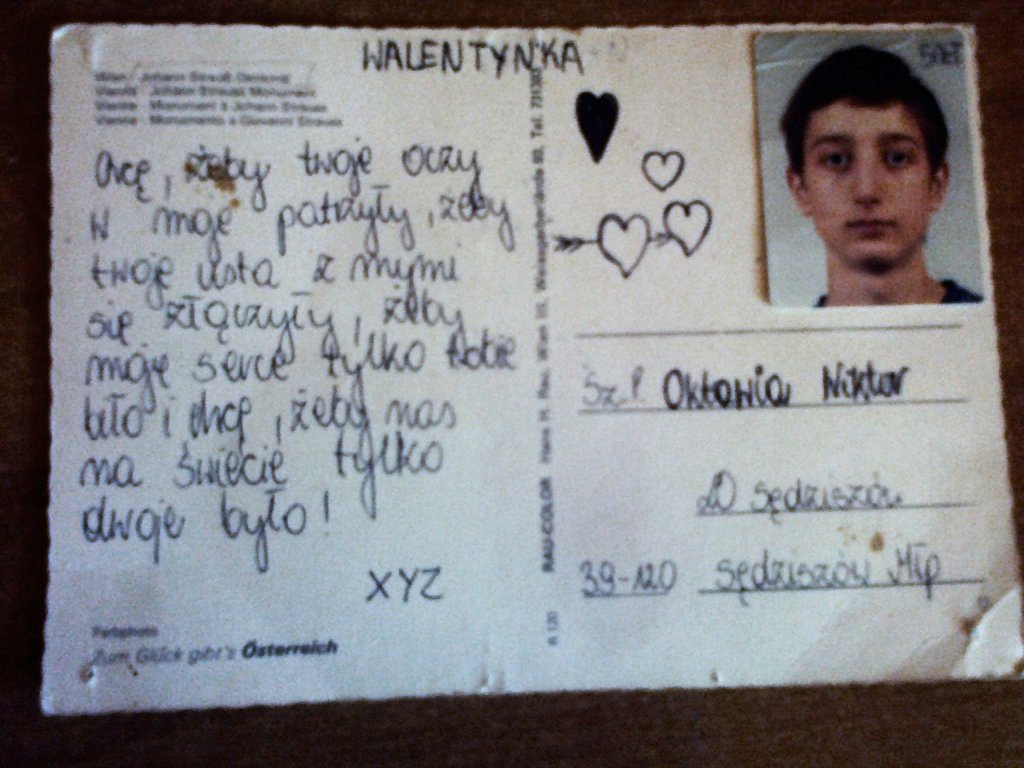 WALENTYNKA
Wien, Johann Strauß Denkmal
Vienna, Johann Strauss Monument
Vienne - Monument à Johann Strauss
Vienna - Monumento a Giovanni Strauss
Chcę, żeby twoje oczy
w moje patrzyły, żeby
twoje usta z mymi
się złączyły, żeby
moje serce tylko tobie
biło i chcę, żeby nas
na świecie tylko
dwoje było!
XYZ
Farbphoto
Zum Glück gibt's Österreich
RAU-COLOR Hans H. Rau, Wien
Sz.P. Oktawia Wiktor
LO Sędziszów
39-120 Sędziszów Młp